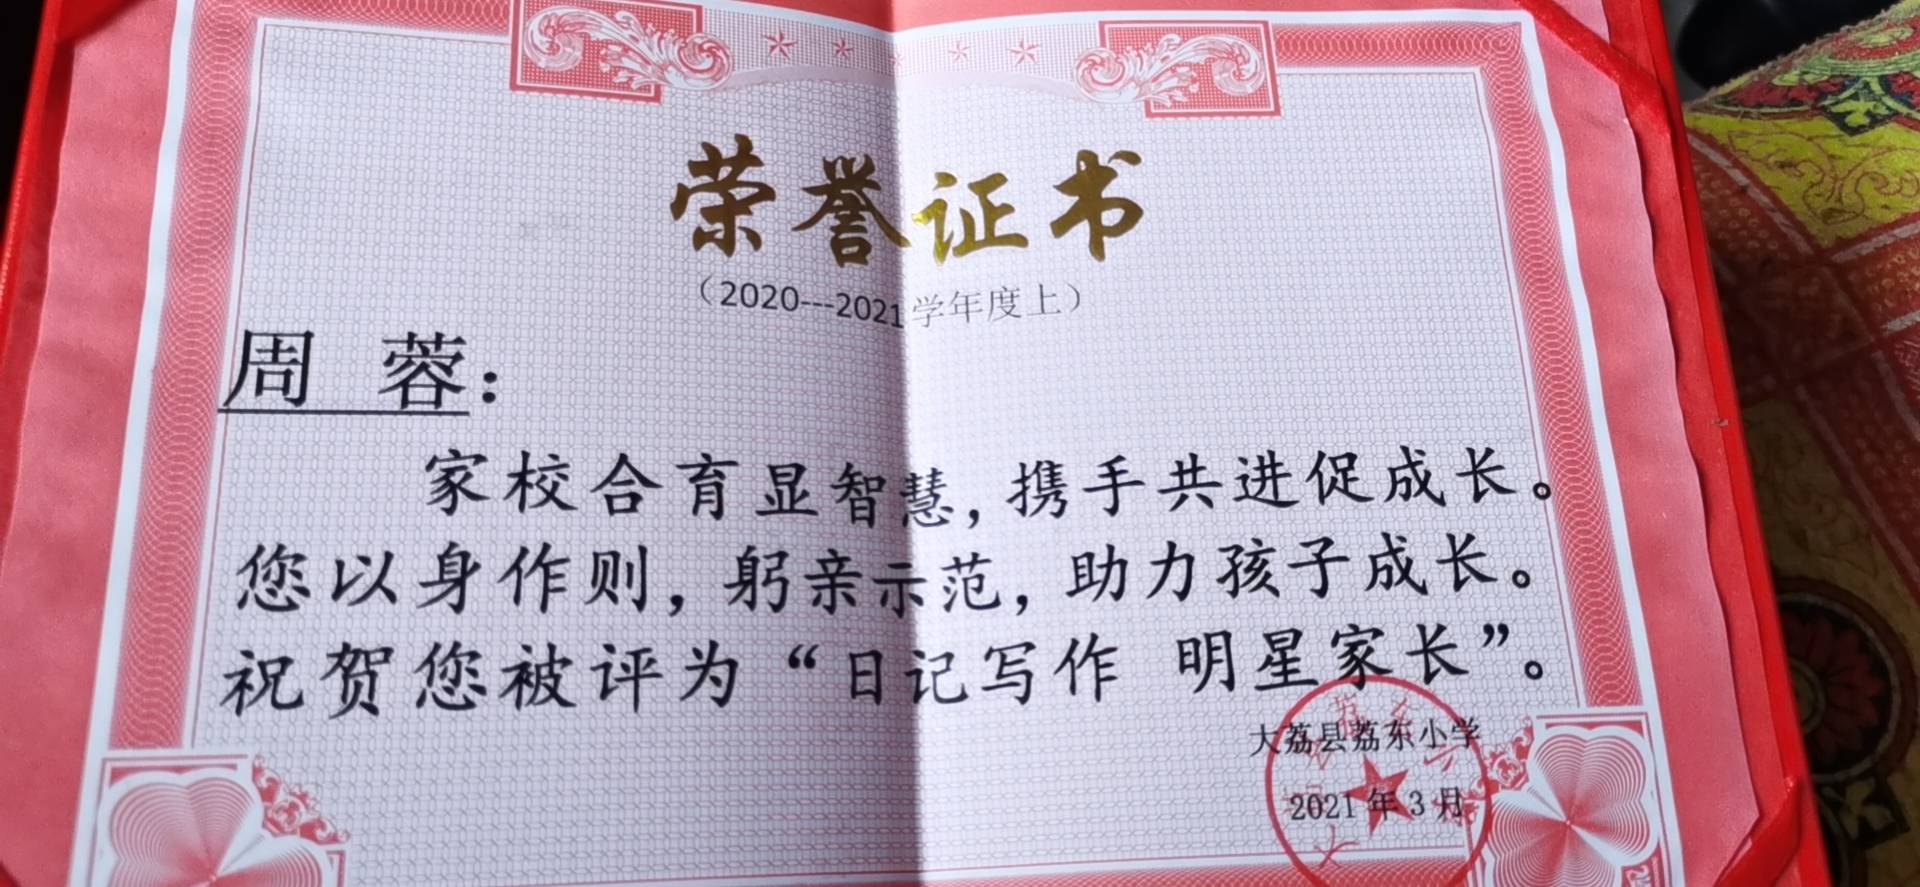 荣誉证书
（2020---2021学年度上）
周 蓉：
家校合育显智慧，携手共进促成长。
您以身作则，躬亲示范，助力孩子成长。
祝贺您被评为“日记写作 明星家长”。
大荔县荔东小学
2021年3月